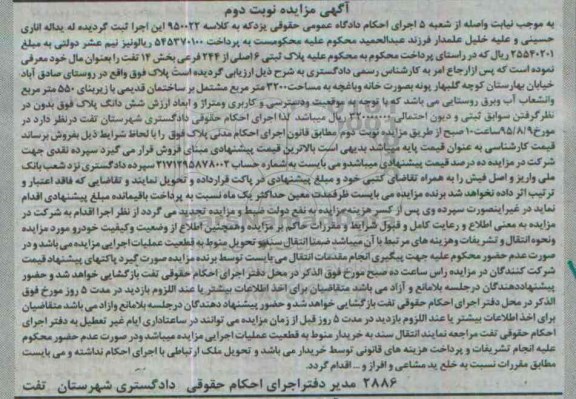 آگهی مزایده نوبت دوم
به موجب نیابت واصله از شعبه ۵ اجرای احکام دادگاه عمومی حقوقی یزدکه به کلاسه ۹۵۰۰۲۲ این اجرا ثبت گردیده له یداله اناری
حسینی و علیه خلیل علمدار فرزند عبدالحمید محکوم علیه محکومست به پرداخت ۵۴۵۳۷۰۱۰۰ ریالونیز نیم عشر دولتی به مبلغ
۲۵۵۴۰۲۰۱ ریال که در راستای پرداخت محکوم به محکوم علیه پلاک ثبتی ۶ اصلی از ۲۴۴ فرعی بخش ۱۴ تفت را بعنوان مال خود معرفی
نموده است که پس ازارجاع امر به کارشناس رسمی دادگستری به شرح ذیل ارزیابی گردیده است پلاک فوق واقع در روستای صادق آباد
خیابان بهارستان کوچه گلبهار پونه بصورت خانه وباغچه به مساحت ۳۲۰۰ متر مربع مشتمل بر ساختمان قدیمی با زیربنای ۵۵۰ متر مربع
وانشعاب آب وبرق روستایی می باشد که با توجه به موقعیت ودسترسی و کاربری ومتراژ و ابعاد ارزش شش دانگ پلاک فوق بدون در
نظرگرفتن سوابق ثبتی و دیون احتمالی ریال میباشد لذا اجرای احکام حقوقی دادگستری شهرستان تفت درنظر دارد در
مورخ ۹۵/۸/۹ ساعت ۱۰ صبح از طریق مزایده نوبت دوم مطابق قانون اجرای احکام مدنی پلاک فوق را با لحاظ شرایط ذیل بفروش برساند
قیمت کارشناسی به عنوان قیمت پایه میباشد بدیهی است بالاترین قیمت پیشنهادی مبنای فروش قرار می گیرد سپرده نقدی جهت
شرکت در مزایده ده درصد قیمت پیشنهادی میباشدو می بایست به شماره حساب ۲۱۷۱۲۹۵۸۷۸۰۰۲ سپرده دادگستری نزد شعب بانک
ملی واریز و اصل فیش را به همراه تقاضای کتبی خود و مبلغ پیشنهادی در پاکت قرارداده و تحویل نمایند و تقاضایی که فاقد اعتبار و
ترتیب اثر داده نخواهد شد برنده مزایده می بایست ظرفمدت معین حداکثر یک ماه نسبت به پرداخت باقیمانده مبلغ پیشنهادی اقدام
نماید در غیراینصورت سپرده وی پس از کسر هزینه مزایده به نفع دولت ضبط و مزایده تجدید می گردد از نظر اجرا اقدام به شرکت در
مزایده به معنی اطلاع و رعایت کامل و قبول شرایط و مقررات حاکم بر مزایده وهمچنین اطلاع از وضعیت وکیفیت خودرو مورد مزایده
ونحوه انتقال و تشریفات وهزینه های مرتبط با آن میباشد ضمنا انتقال سندو تحویل منوط به قطعیت عملیات اجرایی مزایده می باشد و در
صورت عدم حضور محکوم علیه جهت پیگیری انجام مقدمات انتقال می بایست توسط برنده مزایده صورت گیرد پاکتهای پیشنهاد قیمت
شرکت کنندگان در مزایده راس ساعت ده صبح مورخ فوق الذکر در محل دفتر اجرای احکام حقوقی تفت بازگشایی خواهد شد و حضور
پیشنهاددهندگان درجلسه بلامانع و آزاد می باشد متقاضیان برای اخذ اطلاعات بیشتر یا عند اللزوم بازدید در مدت ۵ روز مورخ فوق
الذکر در محل دفتر اجرای احکام حقوقی تفت بازگشایی خواهد شد و حضور پیشنهاد دهندگان درجلسه بلامانع وازاد می باشد متقاضیان
برای اخذ اطلاعات بیشتر یا عند اللزوم بازدید در مدت ۵ روز قبل از زمان مزایده می توانند در ساعتاداری ایام غیر تعطیل به دفتر اجرای
احکام حقوقی تفت مراجعه نمایند انتقال سند به خریدار منوط به قطعیت عملیات اجرایی مزایده میباشد ودر صورت عدم حضور محکوم
علیه انجام تشریفات و پرداخت هزینه های قانونی توسط خریدار می باشد و تحویل ملک ارتباطی با اجرای احکام نداشته و می بایست
مطابق مقررات نسبت به خلع ید مشاعی و افراز و ... اقدام گردد.
۲۸۸۶ مدیر دفتراجرای احکام حقوقی دادگستری شهرستان تفت